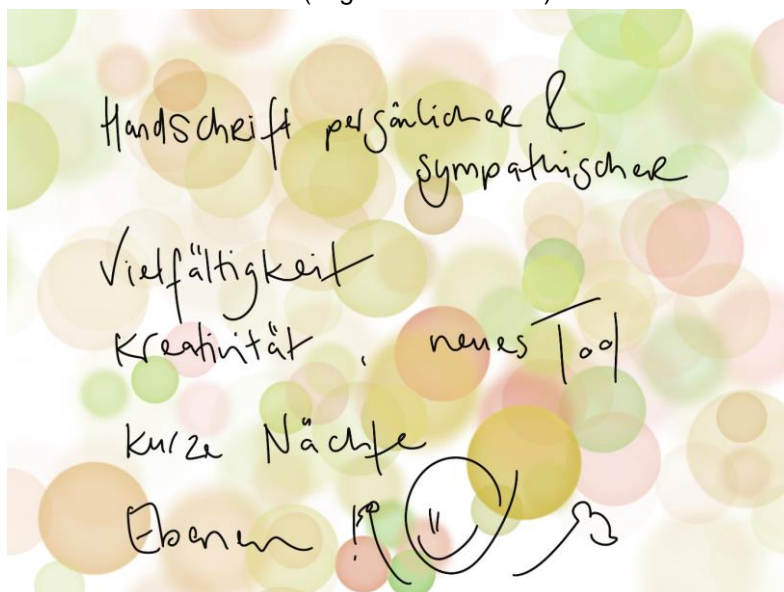 Handschrift persönlicher &
sympathischer
Vielfältigkeit
Kreativität, neues Tool
kurze Nächte
Ebenen !